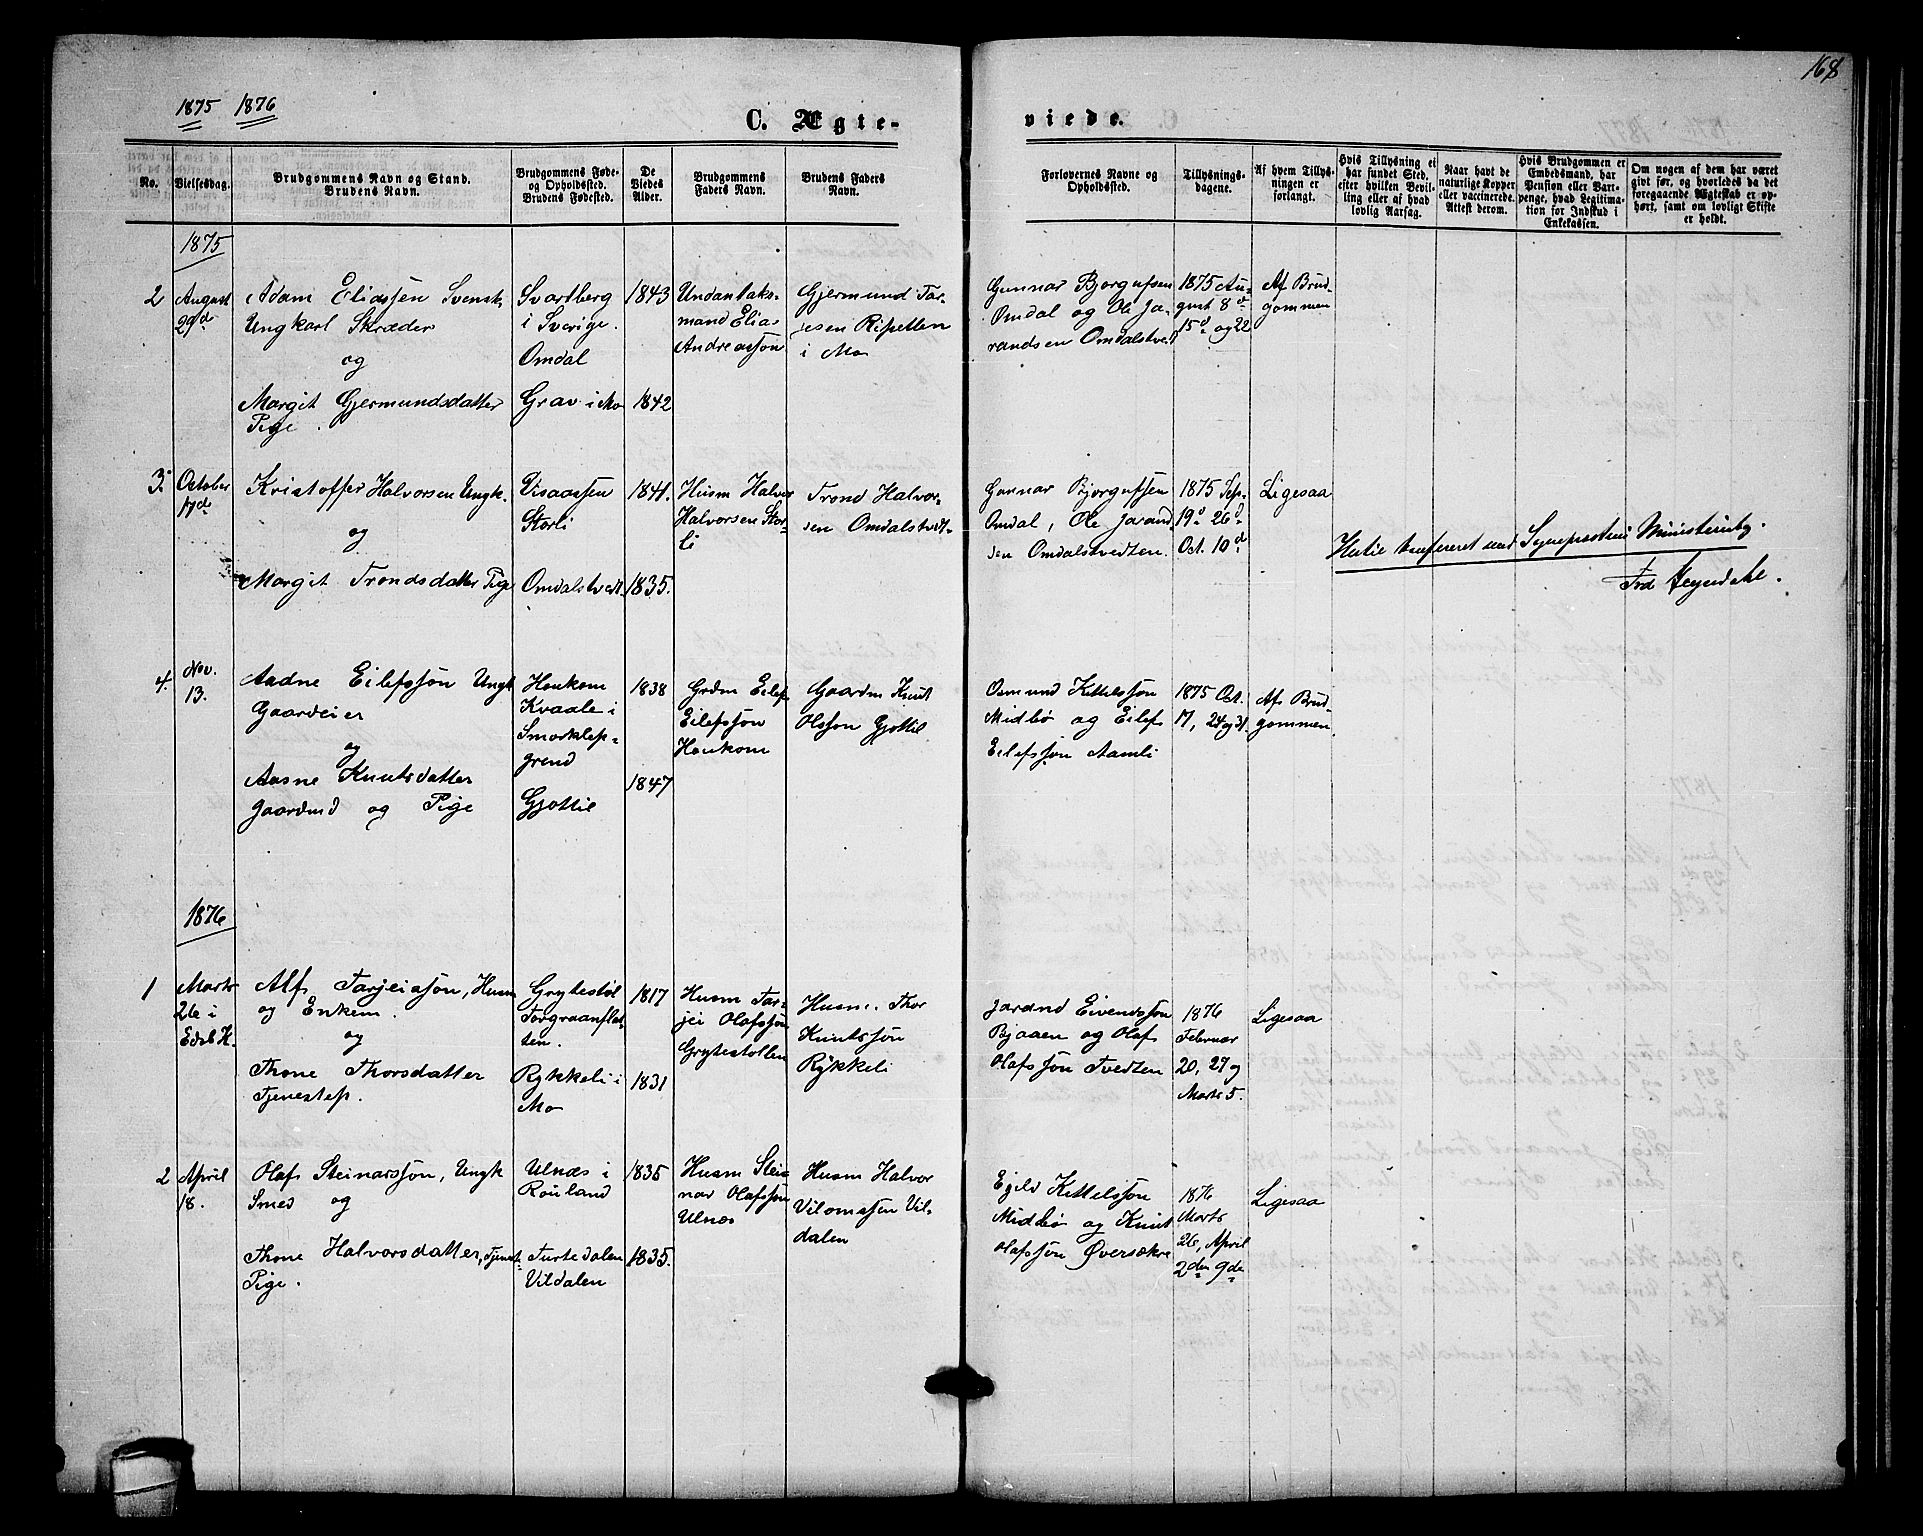 168
1875 1876
C. Ægte-
viede.
No.
Vielsesdag.
Brudgommens Navn og Stand.
Brudens Navn.
Brudgommens Føde-
og Opholdssted.
Brudens Fødested.
De
Viedes
Alder.
Brudgommens
Faders Navn.
Brudens Faders
Navn.
Forlovernes Navne og
Opholdssted.
Tillysnings-
dagene.
Af hvem Tillys-
ningen er
forlangt.
Hvis Tillysning ei
har fundet Sted,
efter hvilken Bevil-
ling eller af hvad
lovlig Aarsag.
Naar havt de
naturlige Kopper
eller vaccinerede.
Attest derom.
Hvis Brudgommen er
Embedsmand, har
Pension eller Vart-
penge, hvad Legitima-
tion for Indskud i
Enkekassen.
Om nogen af dem har været
givt før, og hvorledes da det
foregaaende Ægteskab er op-
hørt, samt om lovligt Skifte
er holdt.
1875
2
August
29de
Adam Eliassen Svensk,
Ungkarl Skræder
og
Margit Gjermundsdatter
Pige.
Svartberg
i Sverige.
Omdal
Grav i Mo
1843
1842
Undantaks-
mand Elias
Andreassøn
Gjermund Tar-
jesen Ripetlen
i Mo
Gunnar Bjorgufsen
Omdal og Ole Ja-
randsen Omdalstvedt
1875 Au-
gust 8d
15d og 22
Af Brud-
gommen
3.
October
17de
Kristoffer Halvorsen Ungk.
og
Margit Trondsdatter Pige
Visaassen
Storli
Omdalstvedt.
1841.
1835.
Husm Halvor
Halvorsen Stor-
li
Trond Halvor-
sen Omdalstvedt-
Gunnar Bjorgufsen
Omdal, Ole Jarand-
sen Omdalstvedten.
1875 Sep.
19d 26d
Oct. 10d
Ligesaa
Ministerialbg.
4.
Nov.
13.
Aadne Eilefssøn Ungk
Gaardeier
og
Aasne Knutsdatter
Gaardmd og Pige
Houkom
Kvaale i
Smørklep-
grend
Gjøttil
1838
1847
Grdm Eilef
Eilefssøn
Houkom
Gaardm Knut
Olssøn Gjøttil
Osmund Kittelssøn
Midbø og Eilef
Eilefssøn Aamli
1875 Oct.
17, 24 og 31.
Af Brud-
gommen
1876
1
Marts
26 i
Edsl K.
Alf Tarjeissøn, Husm
og Enkem.
og
Thone Thorsdatter
Tjenestep.
Grytestøl
Torgraanflat-
ten.
Rykkeli i
Mo
1817
1831
Husm Tar-
jei Olafssøn
Grytestøllen
Husm. Thor
Knutssøn
Rykkeli
Jarand Eivendssøn
Bjaaen og Olaf
Olafssøn Tvedten
1876
Februar
20, 27 og
Marts 5.
Ligesaa
2
April
18.
Olaf Steinarssøn, Ungk
Smed og
Thone Halvorsdatter, Tjeneste-
Pige.
Ulnæs i
Rouland
Turtedalen
Vildalen
1835
1835.
Husm Stei-
nar Olafssøn
Ulnæs
Husm Halvor
Vilomssen Vil-
dalen
Egild Kittelssøn
Midbø og Knut
Olafssøn Øversækre
1876
Marts
26, April
2den 9de
Ligesaa